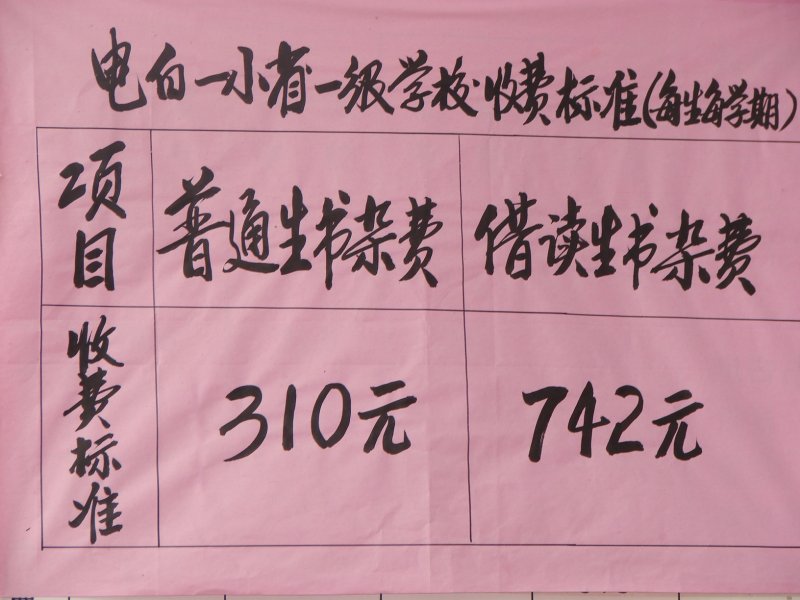 电白一小省一级学校收费标准(每生每学期)
项目 普通生书杂费 借读生书杂费
收费标准 310元 742元